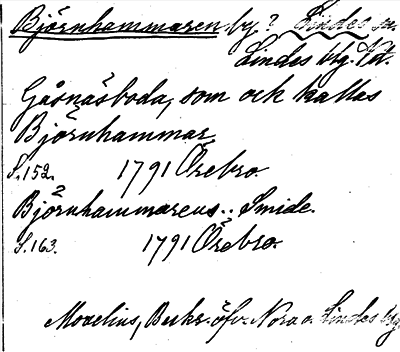 Björnhammaren by? Lindes sn.
Lindes blg. Vst.
Gåsnäsboda, som ock kallas
Björnhammar
S. 152. 1791 Örebro.
Björnhammarens.. Smide.
S. 163. 1791 Örebro.
Moxelius, Beskr. öfv. Nora o. Lindes blg